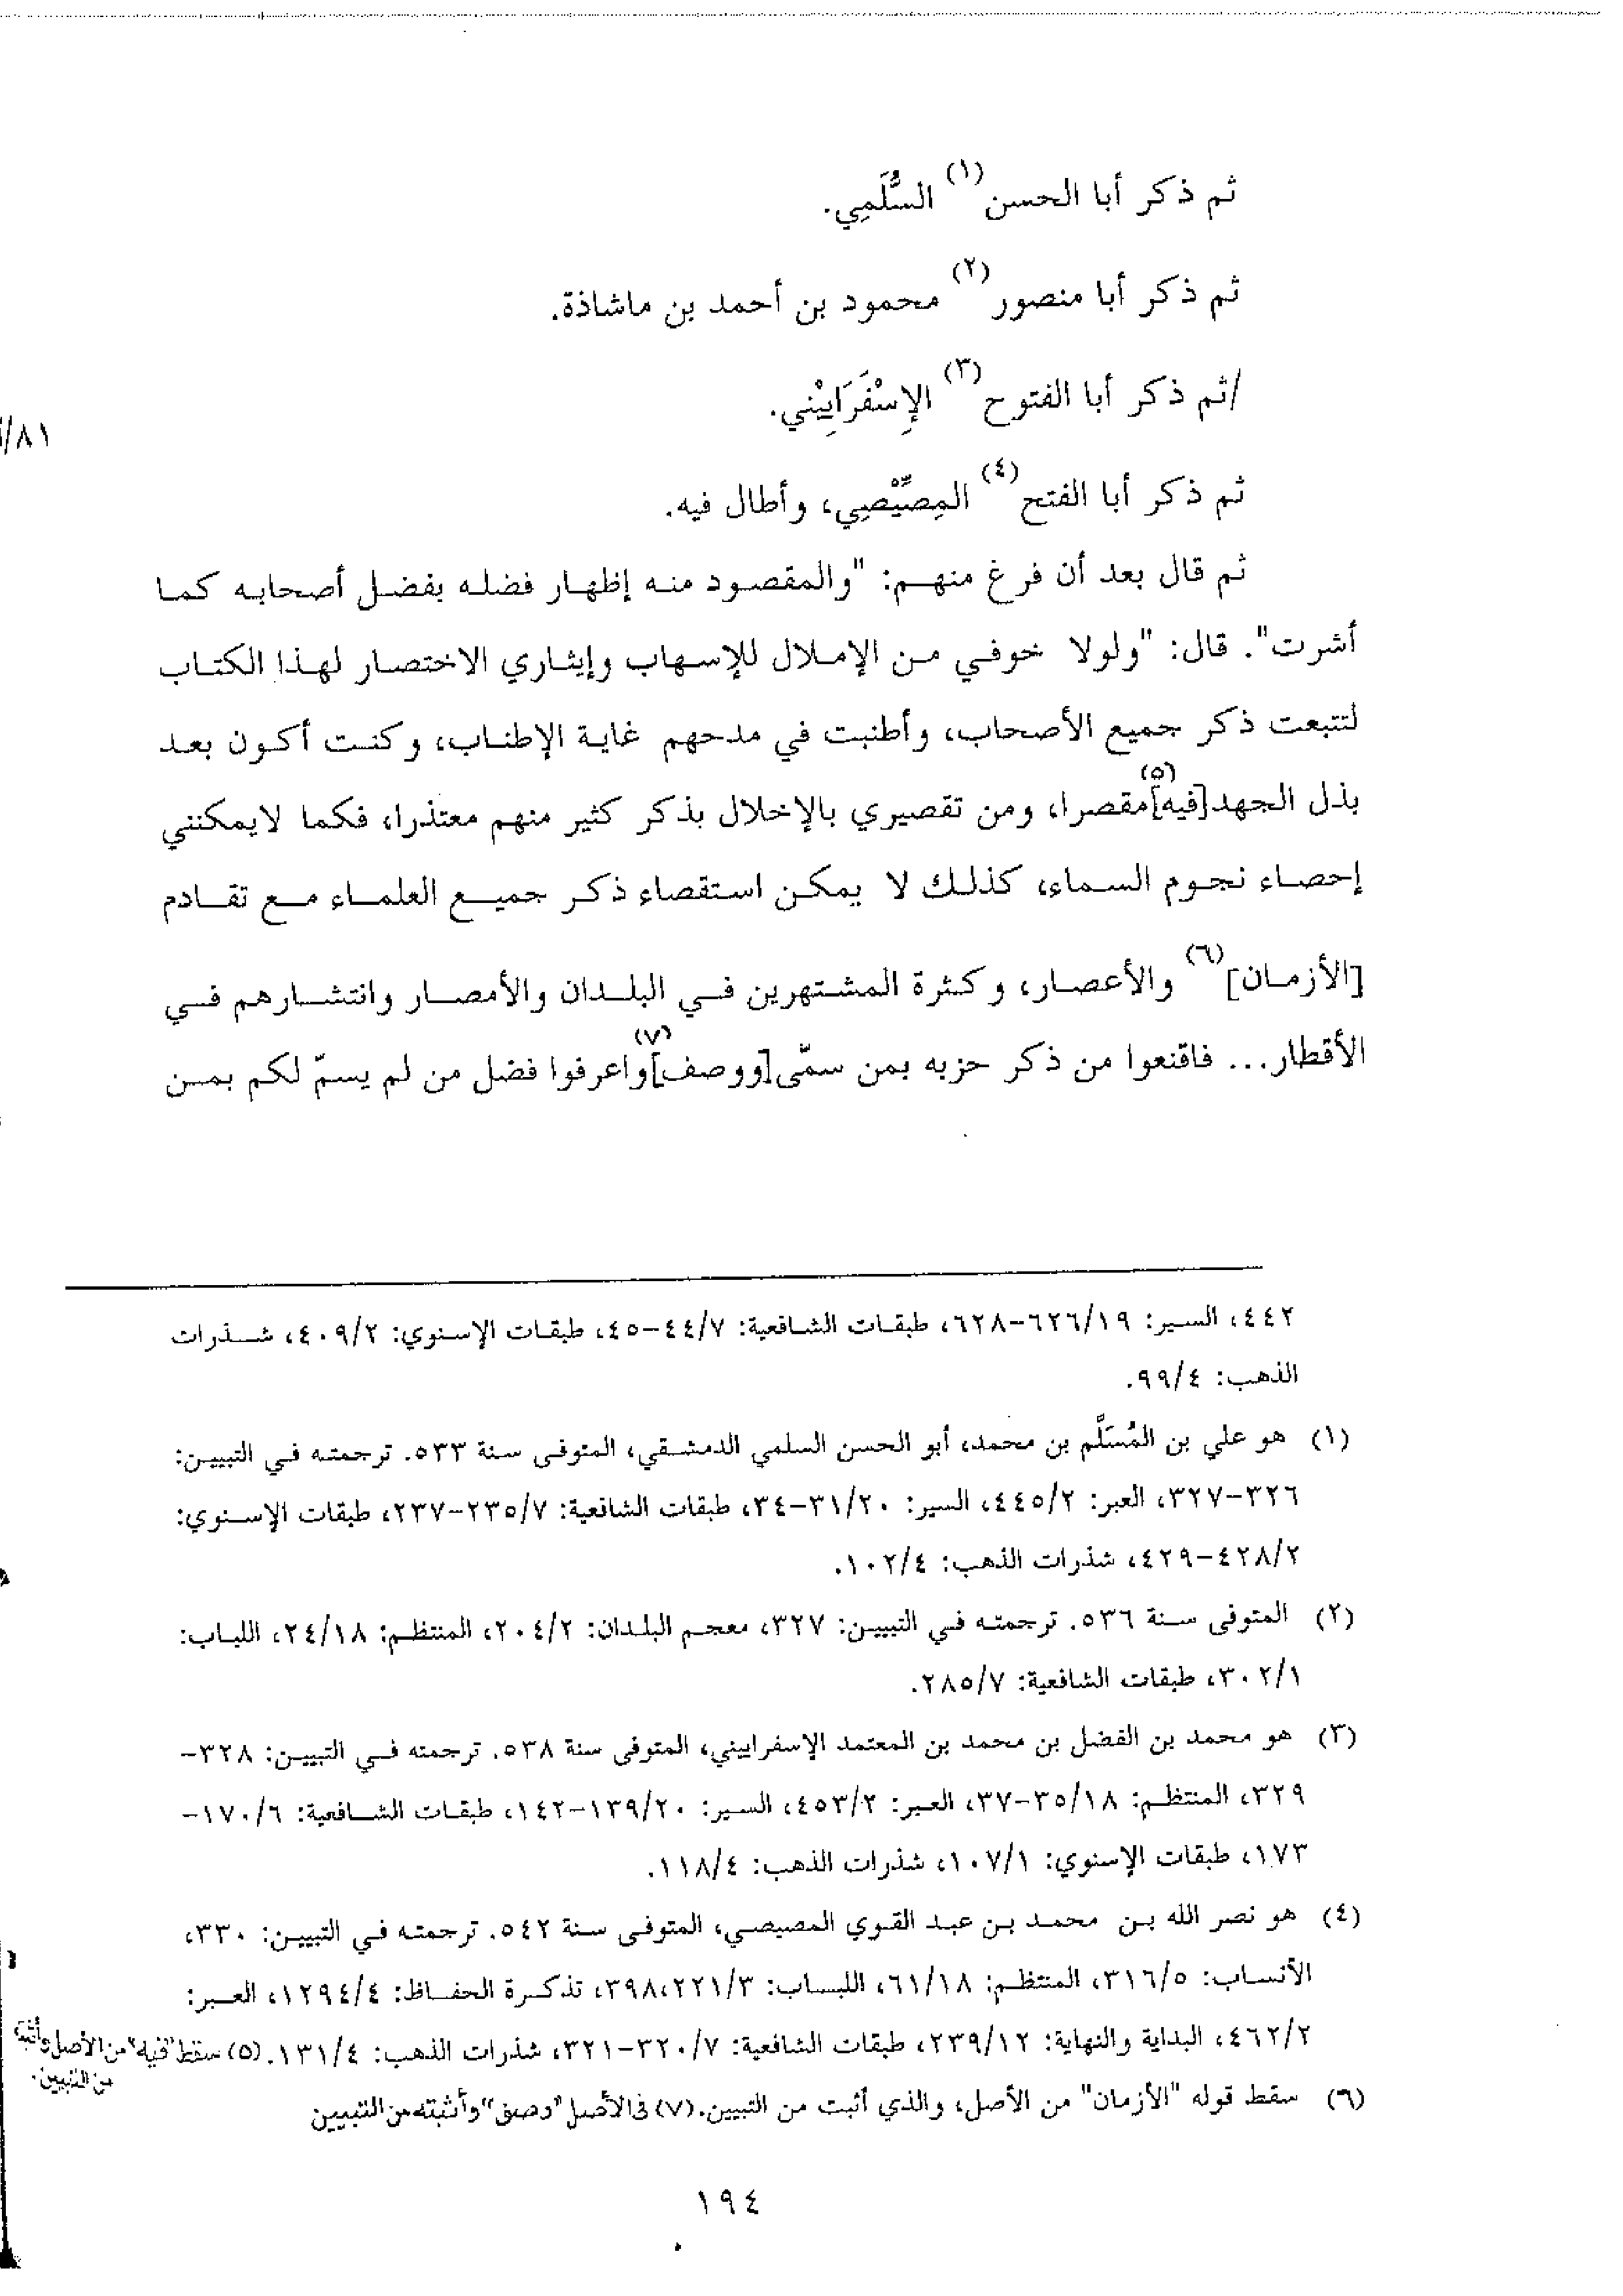 ثم ذكر أبا الحسن(١) السُّلَمِي.
ثم ذكر أبا منصور(٢) محمود بن أحمد بن ماشاذة.
/ثم ذكر أبا الفتوح(٣) الإِسْفَرَايِيْني.
/٨١
ثم ذكر أبا الفتح(٤) المِصِّيْصِي، وأطال فيه.
ثم قال بعد أن فرغ منهم: "والمقصود منه إظهار فضله بفضل أصحابه كما
أشرت". قال: "ولولا خوفي من الإملال للإسهاب وإيثاري الاختصار لهذا الكتاب
لتتبعت ذكر جميع الأصحاب، وأطنبت في مدحهم غاية الإطناب، وكنت أكون بعد
بذل الجهد[فيه](٥)مقصرا، ومن تقصيري بالإخلال بذكر كثير منهم معتذرا، فكما لايمكنني
إحصاء نجوم السماء، كذلك لا يمكن استقصاء ذكر جميع العلماء مع تقادم
[الأزمان](٦) والأعصار، وكثرة المشتهرين في البلدان والأمصار وانتشارهم في
الأقطار... فاقنعوا من ذكر حزبه بمن سمّى[ووصف](٧)واعرفوا فضل من لم يسمّ لكم بمن
٤٤٢، السير: ٦٢٦/١٩-٦٢٨، طبقات الشافعية: ٤٤/٧-٤٥، طبقات الإسنوي: ٤٠٩/٢، شذرات
الذهب: ٩٩/٤.
(١) هو علي بن المُسَلَّم بن محمد، أبو الحسن السلمي الدمشقي، المتوفى سنة ٥٣٣. ترجمته في التبيين:
٣٢٦-٣٢٧، العبر: ٤٤٥/٢، السير: ٣١/٢٠-٣٤، طبقات الشافعية: ٢٣٥/٧-٢٣٧، طبقات الإسنوي:
٤٢٨/٢-٤٢٩، شذرات الذهب: ١٠٢/٤.
(٢) المتوفى سنة ٥٣٦. ترجمته في التبيين: ٣٢٧، معجم البلدان: ٢٠٤/٢، المنتظم: ٢٤/١٨، اللباب:
٣٠٢/١، طبقات الشافعية: ٢٨٥/٧.
(٣) هو محمد بن الفضل بن محمد بن المعتمد الإسفراييني، المتوفى سنة ٥٣٨. ترجمته في التبيين: ٣٢٨-
٣٢٩، المنتظم: ٣٥/١٨-٣٧، العبر: ٤٥٣/٢، السير: ١٣٩/٢٠-١٤٢، طبقات الشافعية: ١٧٠/٦-
١٧٣، طبقات الإسنوي: ١٠٧/١، شذرات الذهب: ١١٨/٤.
(٤) هو نصر الله بن محمد بن عبد القوي المصيصي، المتوفى سنة ٥٤٢. ترجمته في التبيين: ٣٣٠،
الأنساب: ٣١٦/٥، المنتظم: ٦١/١٨، اللباب: ٢٢١/٣،٣٩٨، تذكرة الحفاظ: ١٢٩٤/٤، العبر:
٤٦٢/٢، البداية والنهاية: ٢٣٩/١٢، طبقات الشافعية: ٣٢٠/٧-٣٢١، شذرات الذهب: ١٣١/٤. (٥) سقط "فيه" من الأصل وأثبته
من التبيين.
(٦) سقط قوله "الأزمان" من الأصل، والذي أثبت من التبيين. (٧) في الأصل "وصف" وأثبته من التبيين
١٩٤